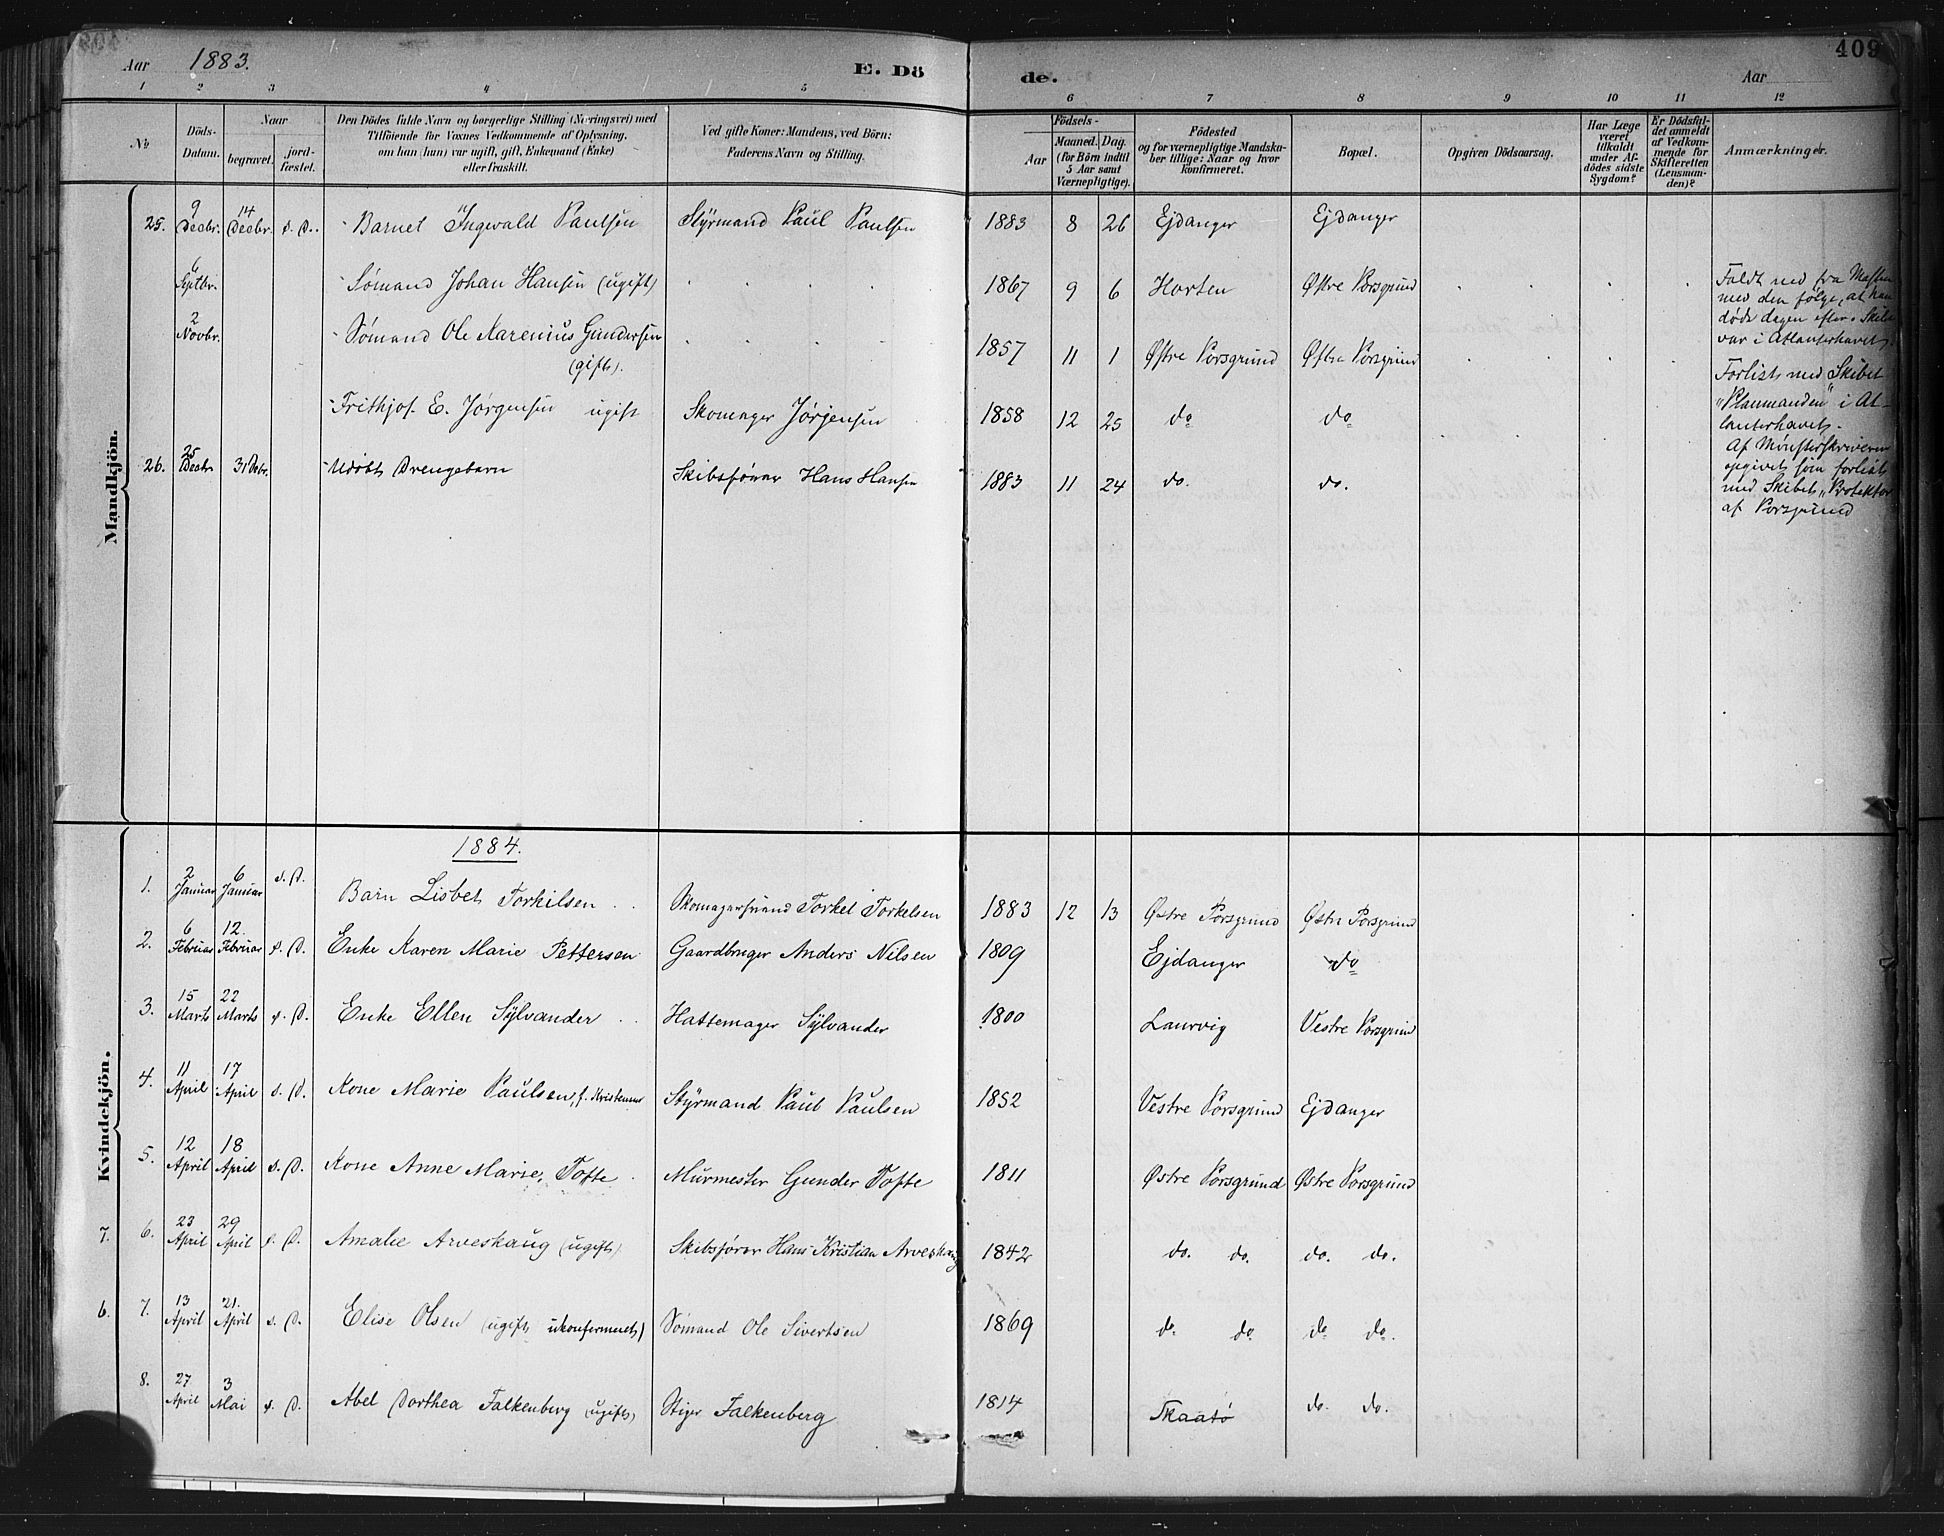 Aar 1883. E. Dö de. Aar 409
1 2 3 4 5 6 7 8 9 10 11 12
No
Döds-
Datum.
Naar
begravet.
jord-
fæstet.
Den Dödes fulde Navn og borgerlige Stilling (Næringsvei) med
Tilföiende for Voxnes Vedkommende af Oplysning,
om han (hun) var ugift, gift, Enkemand (Enke)
eller fraskilt.
Ved gifte Koner: Mandens, ved Börn:
Faderens Navn og Stilling.
Födsels-
Aar
Maaned. Dag.
(for Börn indtil
5 Aar samt
Værnepligtige).
Födested
og for værnepligtige Mandska-
ber tillige: Naar og hvor
konfirmeret.
Bopæl.
Opgiven Dödsaarsag.
Har Læge
været
tilkaldt
under Af-
dödes sidste
Sygdom?
Er Dödsfal-
det anmeldt
af Vedkom-
mende for
Skifteretten
(Lensman-
den)?
Anmærkninger.
Mandkjön.
25. 9 Decbr. 14 Decbr. s. D. Barnet Ingwald Paulsen Styrmand Paul Paulsen 1883 8 26 Ejdanger Ejdanger
6 Septbr. Sømand Johan Hansen (ugift) 1867 9 6 Horten Østre Porsgrund
Faldt ned fra Masten
med den følge, at han
døde dagen efter. Skibet
var i Atlanterhavet.
2 Novbr. Sømand Ole Karenius Gundersen
(gift). 1857 11 1 Østre Porsgrund Østre Porsgrund
Forlist med Skibet
"Planmanden" i At-
lanterhavet.
Frithjof E. Jørgensen ugift Skomager Jørjensen 1858 12 25 do do
Af Mønsterskriveren
opgivet som forlist
med Skibet "Protektor
af Porsgrund
26. 25 Decbr 31 Debr. Udøbt Drengebarn Skibsfører Hans Hansen 1883 11 24 do. do.
Kvindekjön.
1884.
1. 2 Januar 6 Januar s. D. Barn Lisbet Torkilsen Skomagersvend Torkel Torkelsen 1883 12 13 Østre Porsgrund Østre Porsgrund
2. 6 Februar 12. Februar s. D. Enke Karen Marie Pettersen Gaardbruger Anders Nilsen 1809 Ejdanger do
3. 15 Marts 22 Marts s. D. Enke Ellen Sylvander Hattemager Sylvander 1800 Laurvig Vestre Porsgrund
4. 11 April 17 April s. D. Kone Marie Paulsen, f. Kristensen Styrmand Paul Paulsen 1852 Vestre Porsgrund Ejdanger
5. 12 April 18 April s. D. Kone Anne Marie, Tofte Murmester Gunder Tofte 1811 Østre Porsgrund Østre Porsgrund
7. 6. 23 April 29 April s. D. Amalie Arveskaug (ugift) Skibsfører Hans Kristian Arveskaug 1842 do. do. do. do.
6. 7. 13 April 21. April s. D. Elise Olsen (ugift ukonfermeret) Sømand Ole Sivertsen 1869 do do do do.
8. 27 April 3 Mai s. D. Abel Dorthea Falkenberg (ugift) Stiger Falkenberg 1814 Skaatø do. do.